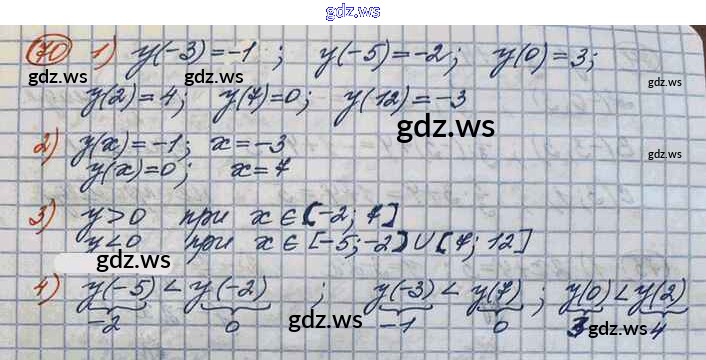 gdz.ws
70 1) y(-3)=-1; y(-5)=-2; y(0)=3;
gdz.ws gdz.ws gdz.ws
y(2)=4; y(7)=0; y(12)=-3
gdz.ws
2) y(x)=-1; x=-3
gdz.ws
y(x)=0; x=7
3) y>0 при x∈[-2; 7]
y<0 при x∈[-5;-2)∪[7; 12]
gdz.ws gdz.ws
4) y(-5)<y(-2); y(-3)<y(7); y(0)<y(2)
-2 0 -1 0 3 4
gdz.ws gdz.ws